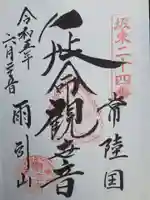 坂東二十四番
常陸国
延命観世音
令和五年
六月
雨引山